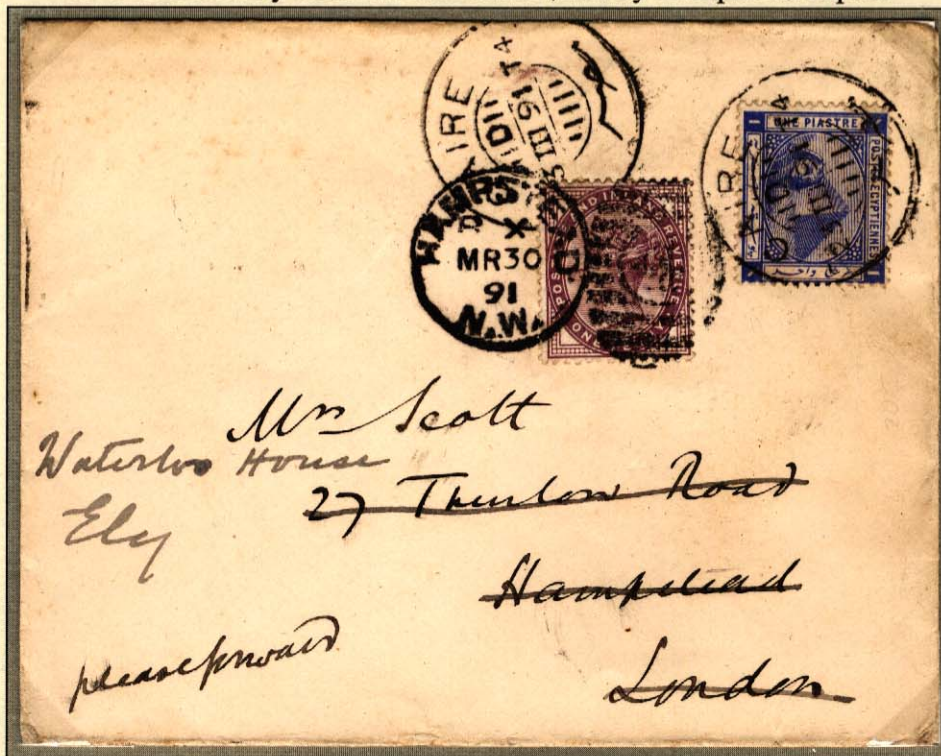 CAIRE
MIDI
III 91
T4
CAIRE
ONE PIASTRE
POSTES EGYPTIENNES
HAMPSTEAD
X
MR 30
91
N.W.
POSTAGE AND INLAND REVENUE
ONE
Mrs Scott
Waterloo House
Ely
27 Thurlow Road
Hampstead
London
please forward